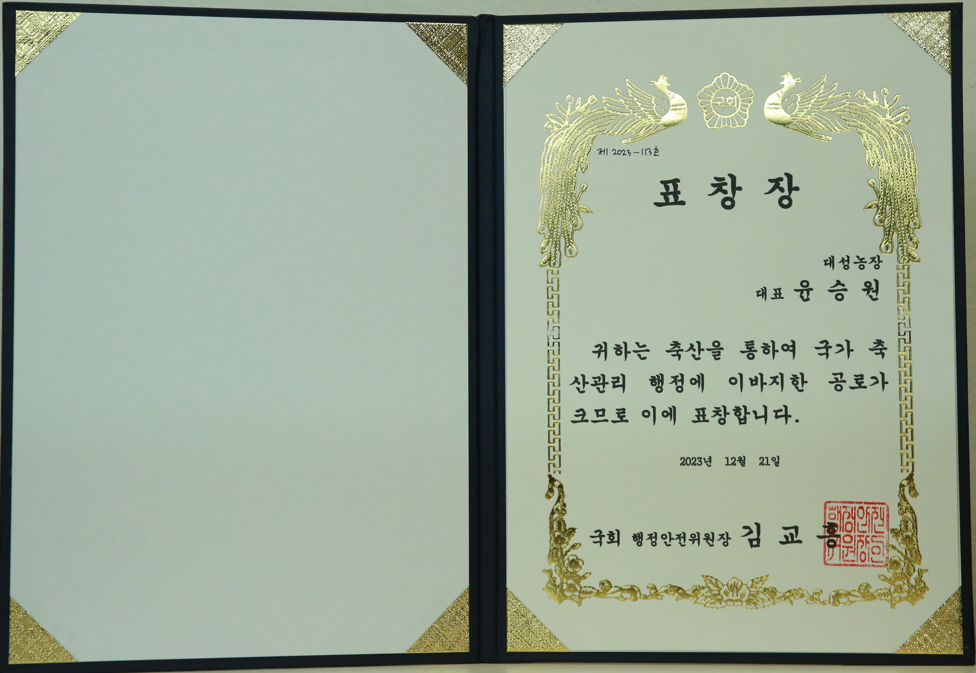 국회
제 2023-113호
표 창 장
대성농장
대표 윤 승 원
귀하는 축산을 통하여 국가 축
산관리 행정에 이바지한 공로가
크므로 이에 표창합니다.
2023년 12월 21일
국회 행정안전위원장 김 교 흥